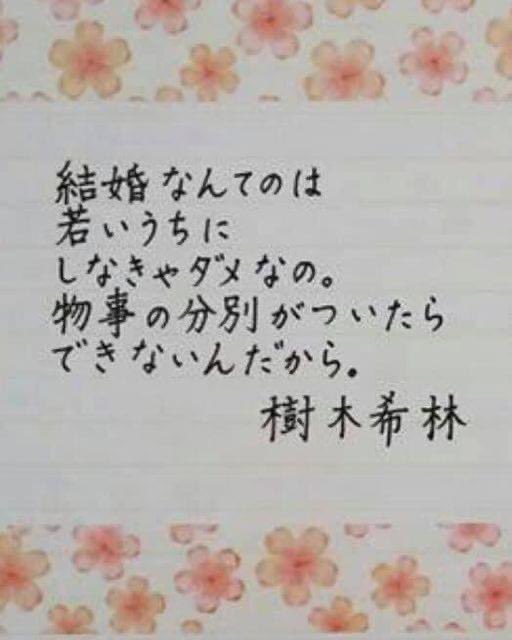 結婚なんてのは
若いうちに
しなきゃダメなの。
物事の分別がついたら
できないんだから。
樹木希林